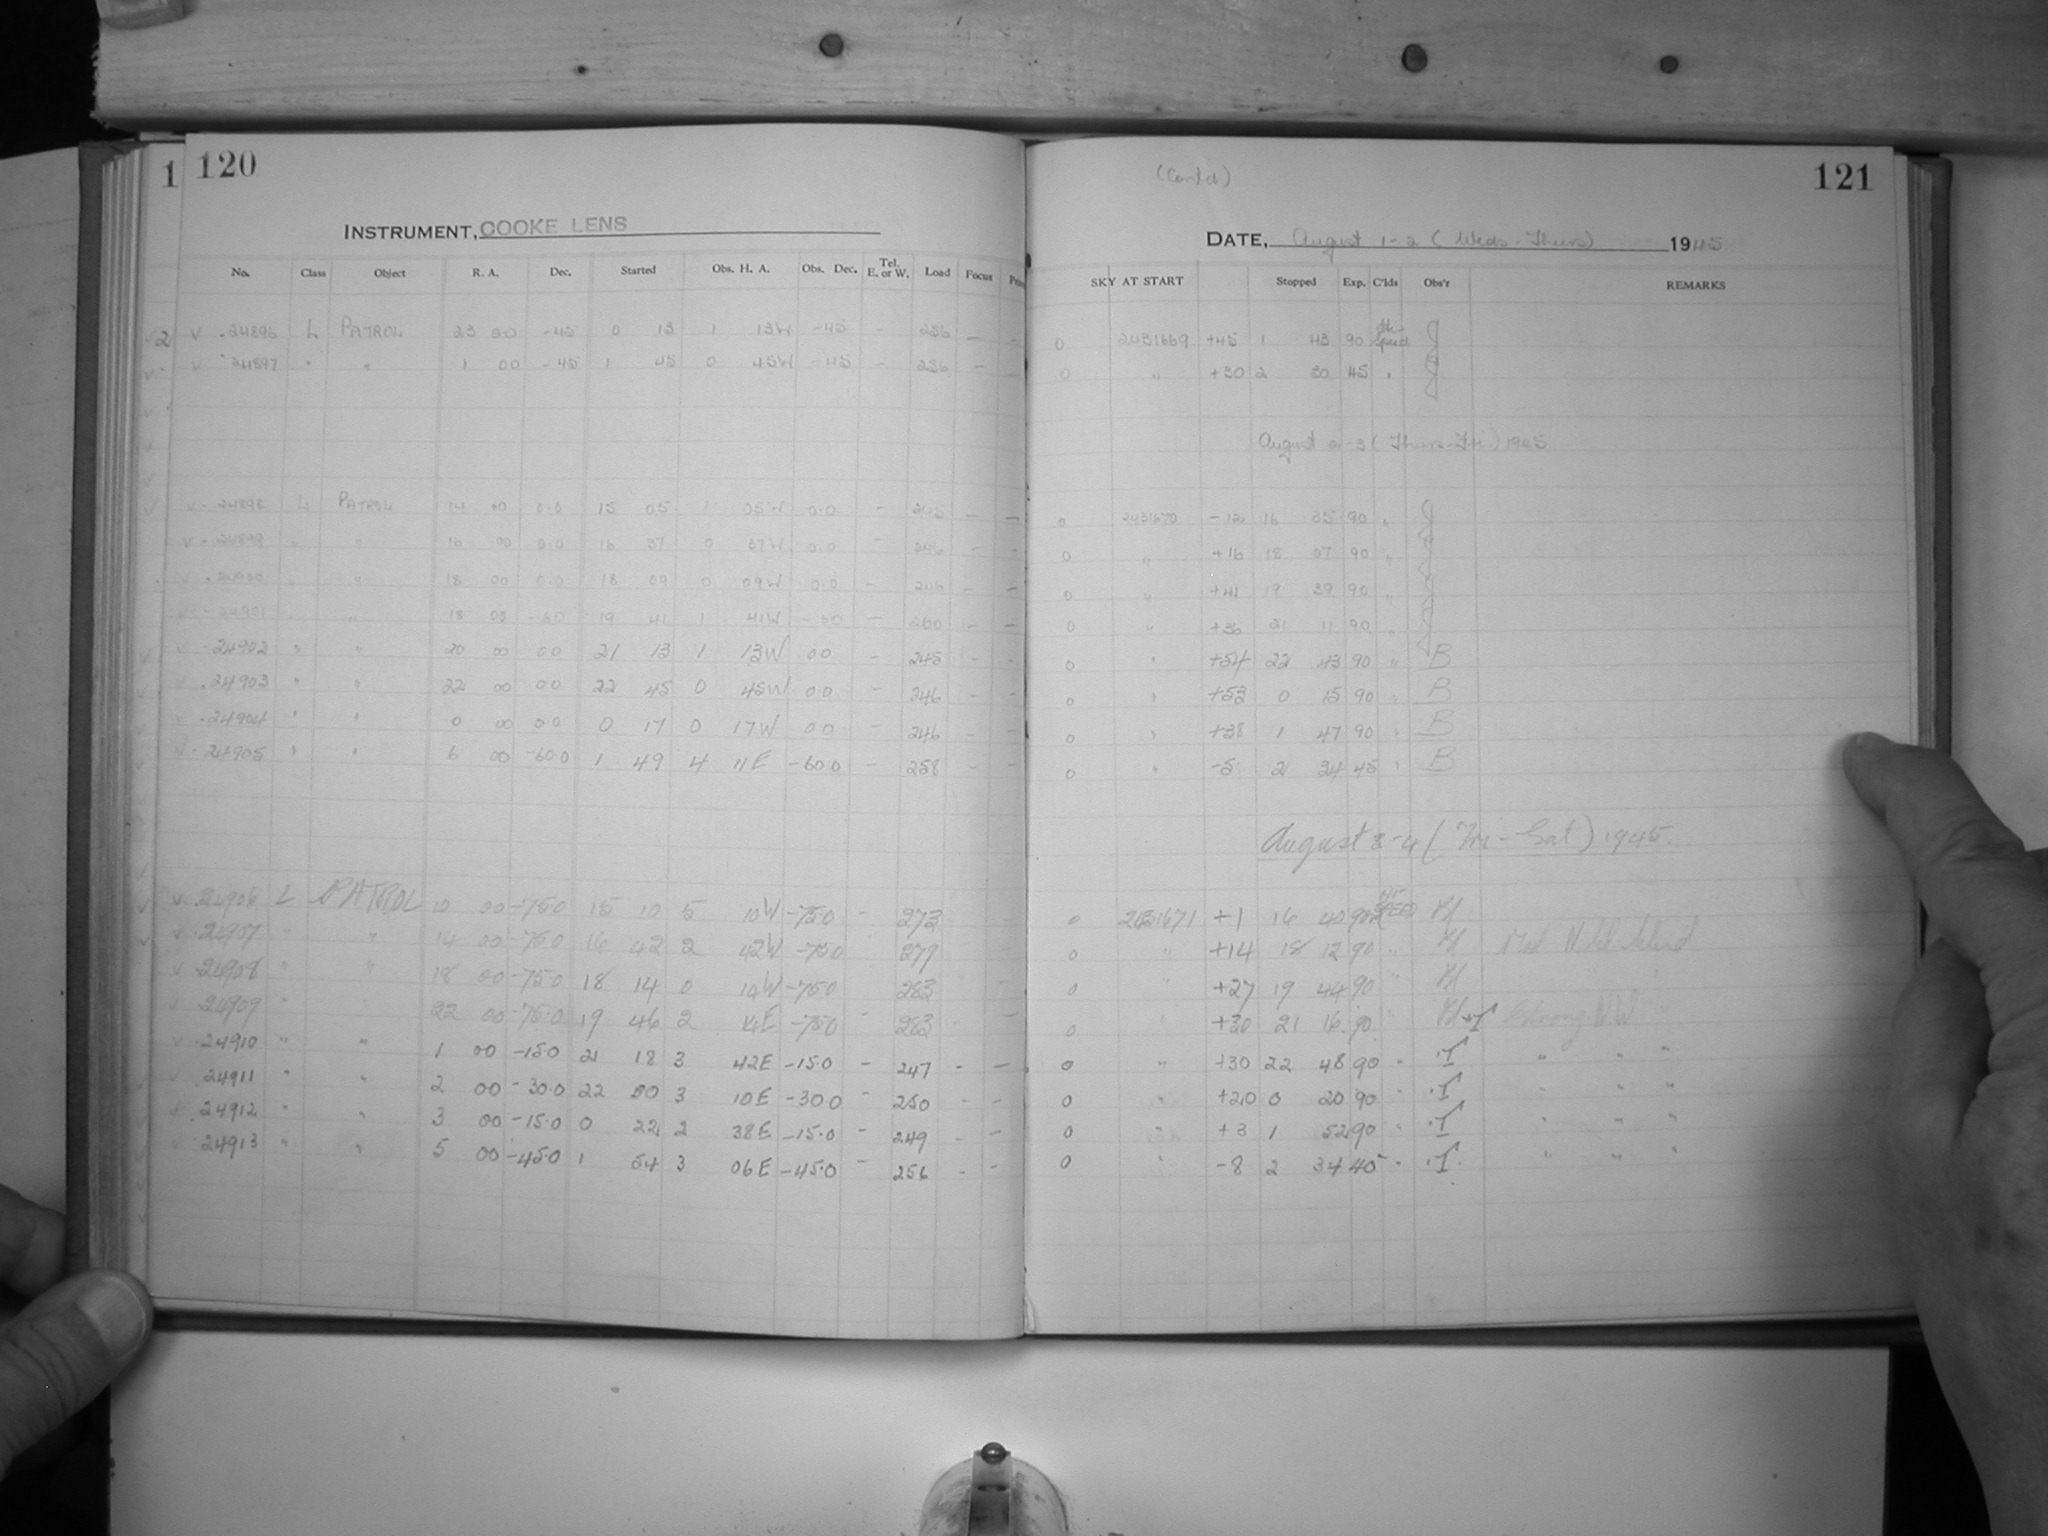 1 120
INSTRUMENT, COOKE LENS
No. Class Object R. A. Dec. Started Obs. H. A. Obs. Dec. Tel. E. or W. Load Focus
2 v .24896 L PATROL 23 00 -45 0 13 1 13W -45 - 256 - -
v .24897 " " 1 00 -45 1 45 0 45W -45 - 256 - -
v .24898 L PATROL 14 00 0.0 15 05 1 05W 0.0 - 245 - -
v .24899 " " 16 00 0.0 16 37 0 37W 0.0 - 246 - -
v .24900 " " 18 00 0.0 18 09 0 09W 0.0 - 246 - -
v .24901 " " 18 00 19 41 1 41W - 260 - -
v .24902 " " 20 00 0.0 21 13 1 13W 0.0 - 245 - -
v .24903 " " 22 00 0.0 22 45 0 45W 0.0 - 246 - -
v .24904 " " 0 00 0.0 0 17 0 17W 0.0 - 246 - -
v .24905 " " 6 00 -60.0 1 49 4 11E -60.0 - 258 - -
v .24906 L PATROL 10 00 -75.0 15 10 5 10W -75.0 - 273 -
v .24907 " " 14 00 -75.0 16 42 2 42W -75.0 - 279 -
v .24908 " " 18 00 -75.0 18 14 0 14W -75.0 - 283 -
v .24909 " " 22 00 -75.0 19 46 2 14E -75.0 - 283 - -
v .24910 " " 1 00 -15.0 21 18 3 42E -15.0 - 247 - -
v .24911 " " 2 00 -30.0 22 50 3 10E -30.0 - 250 - -
v .24912 " " 3 00 -15.0 0 22 2 38E -15.0 - 249 - -
v .24913 " " 5 00 -45.0 1 54 3 06E -45.0 - 256 - -
(Contd) 121
DATE, August 1-2 (Weds-Thurs) 1945
SKY AT START Stopped Exp. C'lds Obs'r REMARKS
0 2431669 +45 1 43 90 J
0 " +30 2 30 45 " J
August 2-3 (Thurs-Fri) 1945
0 2431670 16 35 90 " J
0 " +16 18 07 90 " J
0 " +41 19 39 90 " J
0 " +36 21 11 90 " J
0 " +54 22 43 90 " B
0 " +53 0 15 90 " B
0 " +38 1 47 90 " B
0 " -5 2 34 45 " B
August 3-4 (Fri-Sat) 1945.
0 2431671 +1 16 40 90 SPEED
0 " +14 18 12 90 "
0 " +27 19 44 90 "
0 " +30 21 16 90 " Strong NW "
0 " +30 22 48 90 " " " "
0 " +20 0 20 90 " " " "
0 " +3 1 52 90 " " " "
0 " -8 2 34 40 " " " "